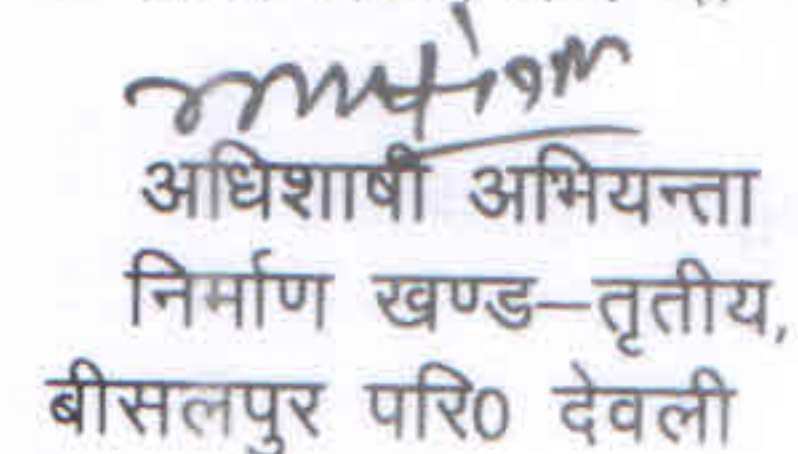 अधिशाषी अभियन्ता
निर्माण खण्ड–तृतीय,
बीसलपुर परि0 देवली